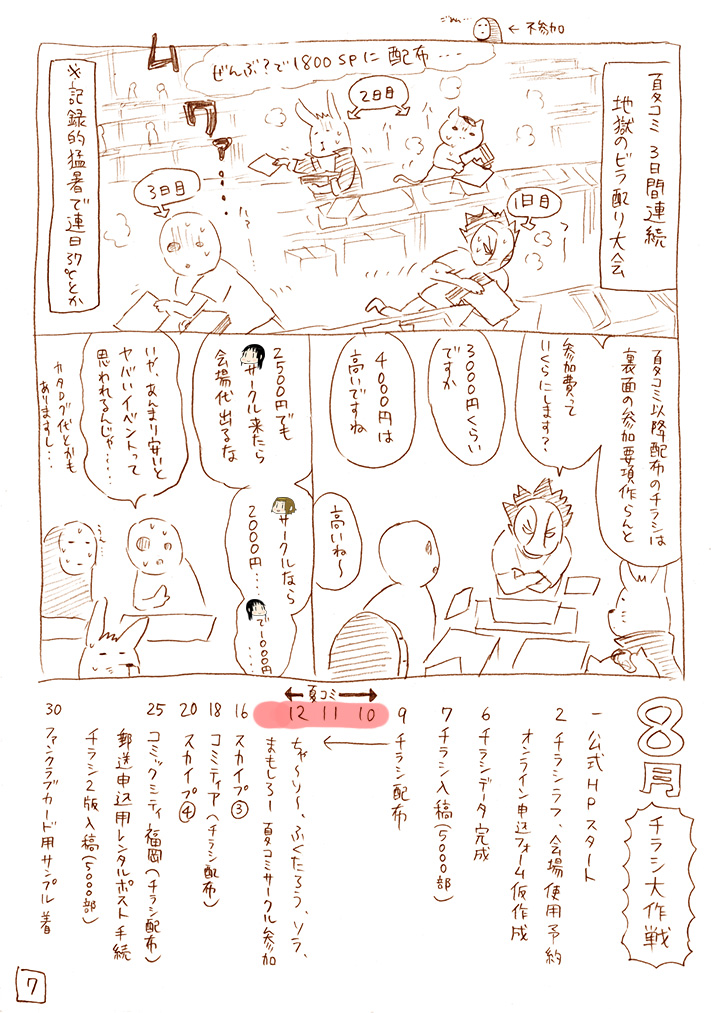 ←不参加
夏コミ 3日間連続
地獄のビラ配り大会
ぜんぶ?で1800SPに配布・・・
2日目
1日目
3日目
ムワァ・・・・
※記録的猛暑で連日37℃とか
夏コミ以降配布のチラシは
裏面の参加要項作らんと
参加費って
いくらにします?
3000円くらい
ですか
4000円は
高いですね
高いね〜
2500円でも
サークル来たら
会場代出るな
サークルなら
2000円・・
で1000円
いや、あんまり安いと
ヤバいイベントって
思われるんじゃ・・・・
カタログ代とかも
ありますし・・・
8月
チラシ大作戦
一 公式HPスタート
2 チラシラフ、会場使用予約
オンライン申込フォーム仮作成
6 チラシデータ完成
7 チラシ入稿(5000部)
9 チラシ配布
夏コミ
10
11
12
ちゃ〜り〜、ふくたろう、ソラ、
まもしろー 夏コミサークル参加
16 スカイプ③
18 コミティア(チラシ配布)
20 スカイプ④
25 コミックシティ福岡(チラシ配布)
郵送申込用レンタルポスト手続
チラシ2版入稿(5000部)
30 ファンクラブカード用サンプル着
7